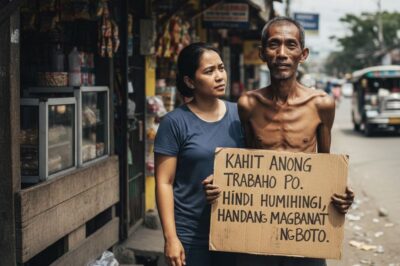 KAHIT ANONG
TRABAHO PO.
HINDI HUMIHINGI,
HANDANG MAGBANAT
NG BOTO.